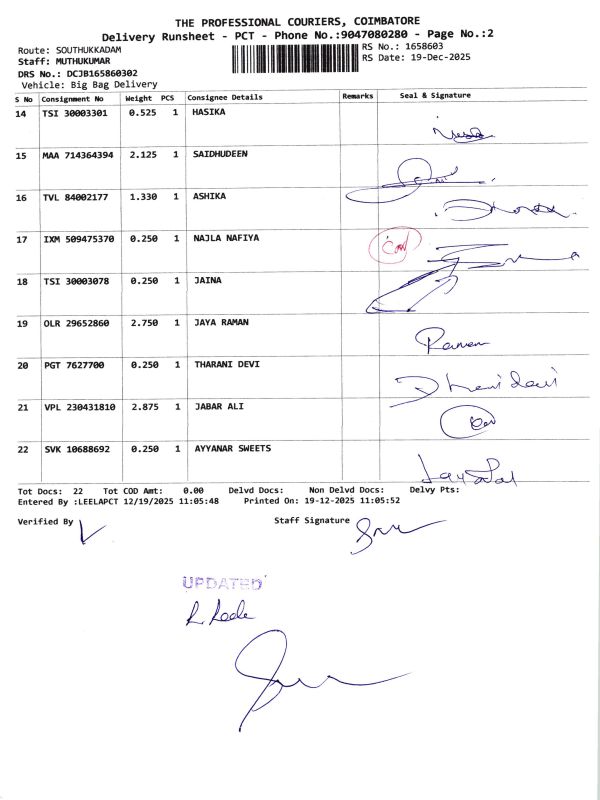 THE PROFESSIONAL COURIERS, COIMBATORE
Delivery Runsheet - PCT - Phone No.:9047080280 - Page No.:2
Route: SOUTHUKKADAM
RS No.: 1658603
Staff: MUTHUKUMAR
RS Date: 19-Dec-2025
DRS No.: DCJB165860302
Vehicle: Big Bag Delivery
S No Consignment No Weight PCS Consignee Details Remarks Seal & Signature
14 TSI 30003301 0.525 1 HASIKA
15 MAA 714364394 2.125 1 SAIDHUDEEN
16 TVL 84002177 1.330 1 ASHIKA
17 IXM 509475370 0.250 1 NAJLA NAFIYA
18 TSI 30003078 0.250 1 JAINA
19 OLR 29652860 2.750 1 JAYA RAMAN
Raman
20 PGT 7627700 0.250 1 THARANI DEVI
21 VPL 230431810 2.875 1 JABAR ALI
22 SVK 10688692 0.250 1 AYYANAR SWEETS
Tot Docs: 22 Tot COD Amt: 0.00 Delvd Docs: Non Delvd Docs: Delvy Pts:
Entered By :LEELAPCT 12/19/2025 11:05:48 Printed On: 19-12-2025 11:05:52
Verified By
Staff Signature
UPDATED